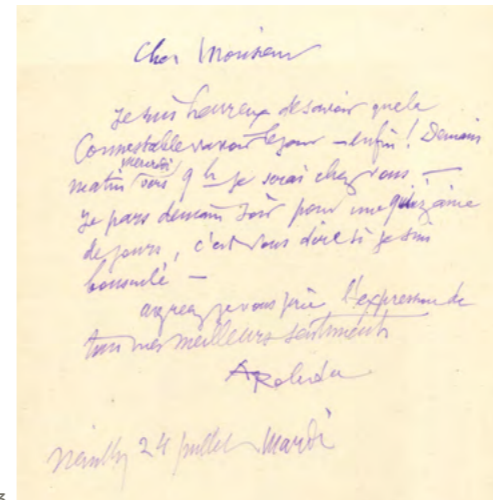 Cher Monsieur
Je suis heureux de savoir que le
Connestable va voir le jour – enfin ! Demain
matin mercredi vers 9 h je serai chez vous –
Je pars demain soir pour une quinzaine
de jours, c'est vous dire si je suis
bousculé –
agréez je vous prie l'expression de
tous mes meilleurs sentiments
A Robida
Neuilly 24 juillet Mardi